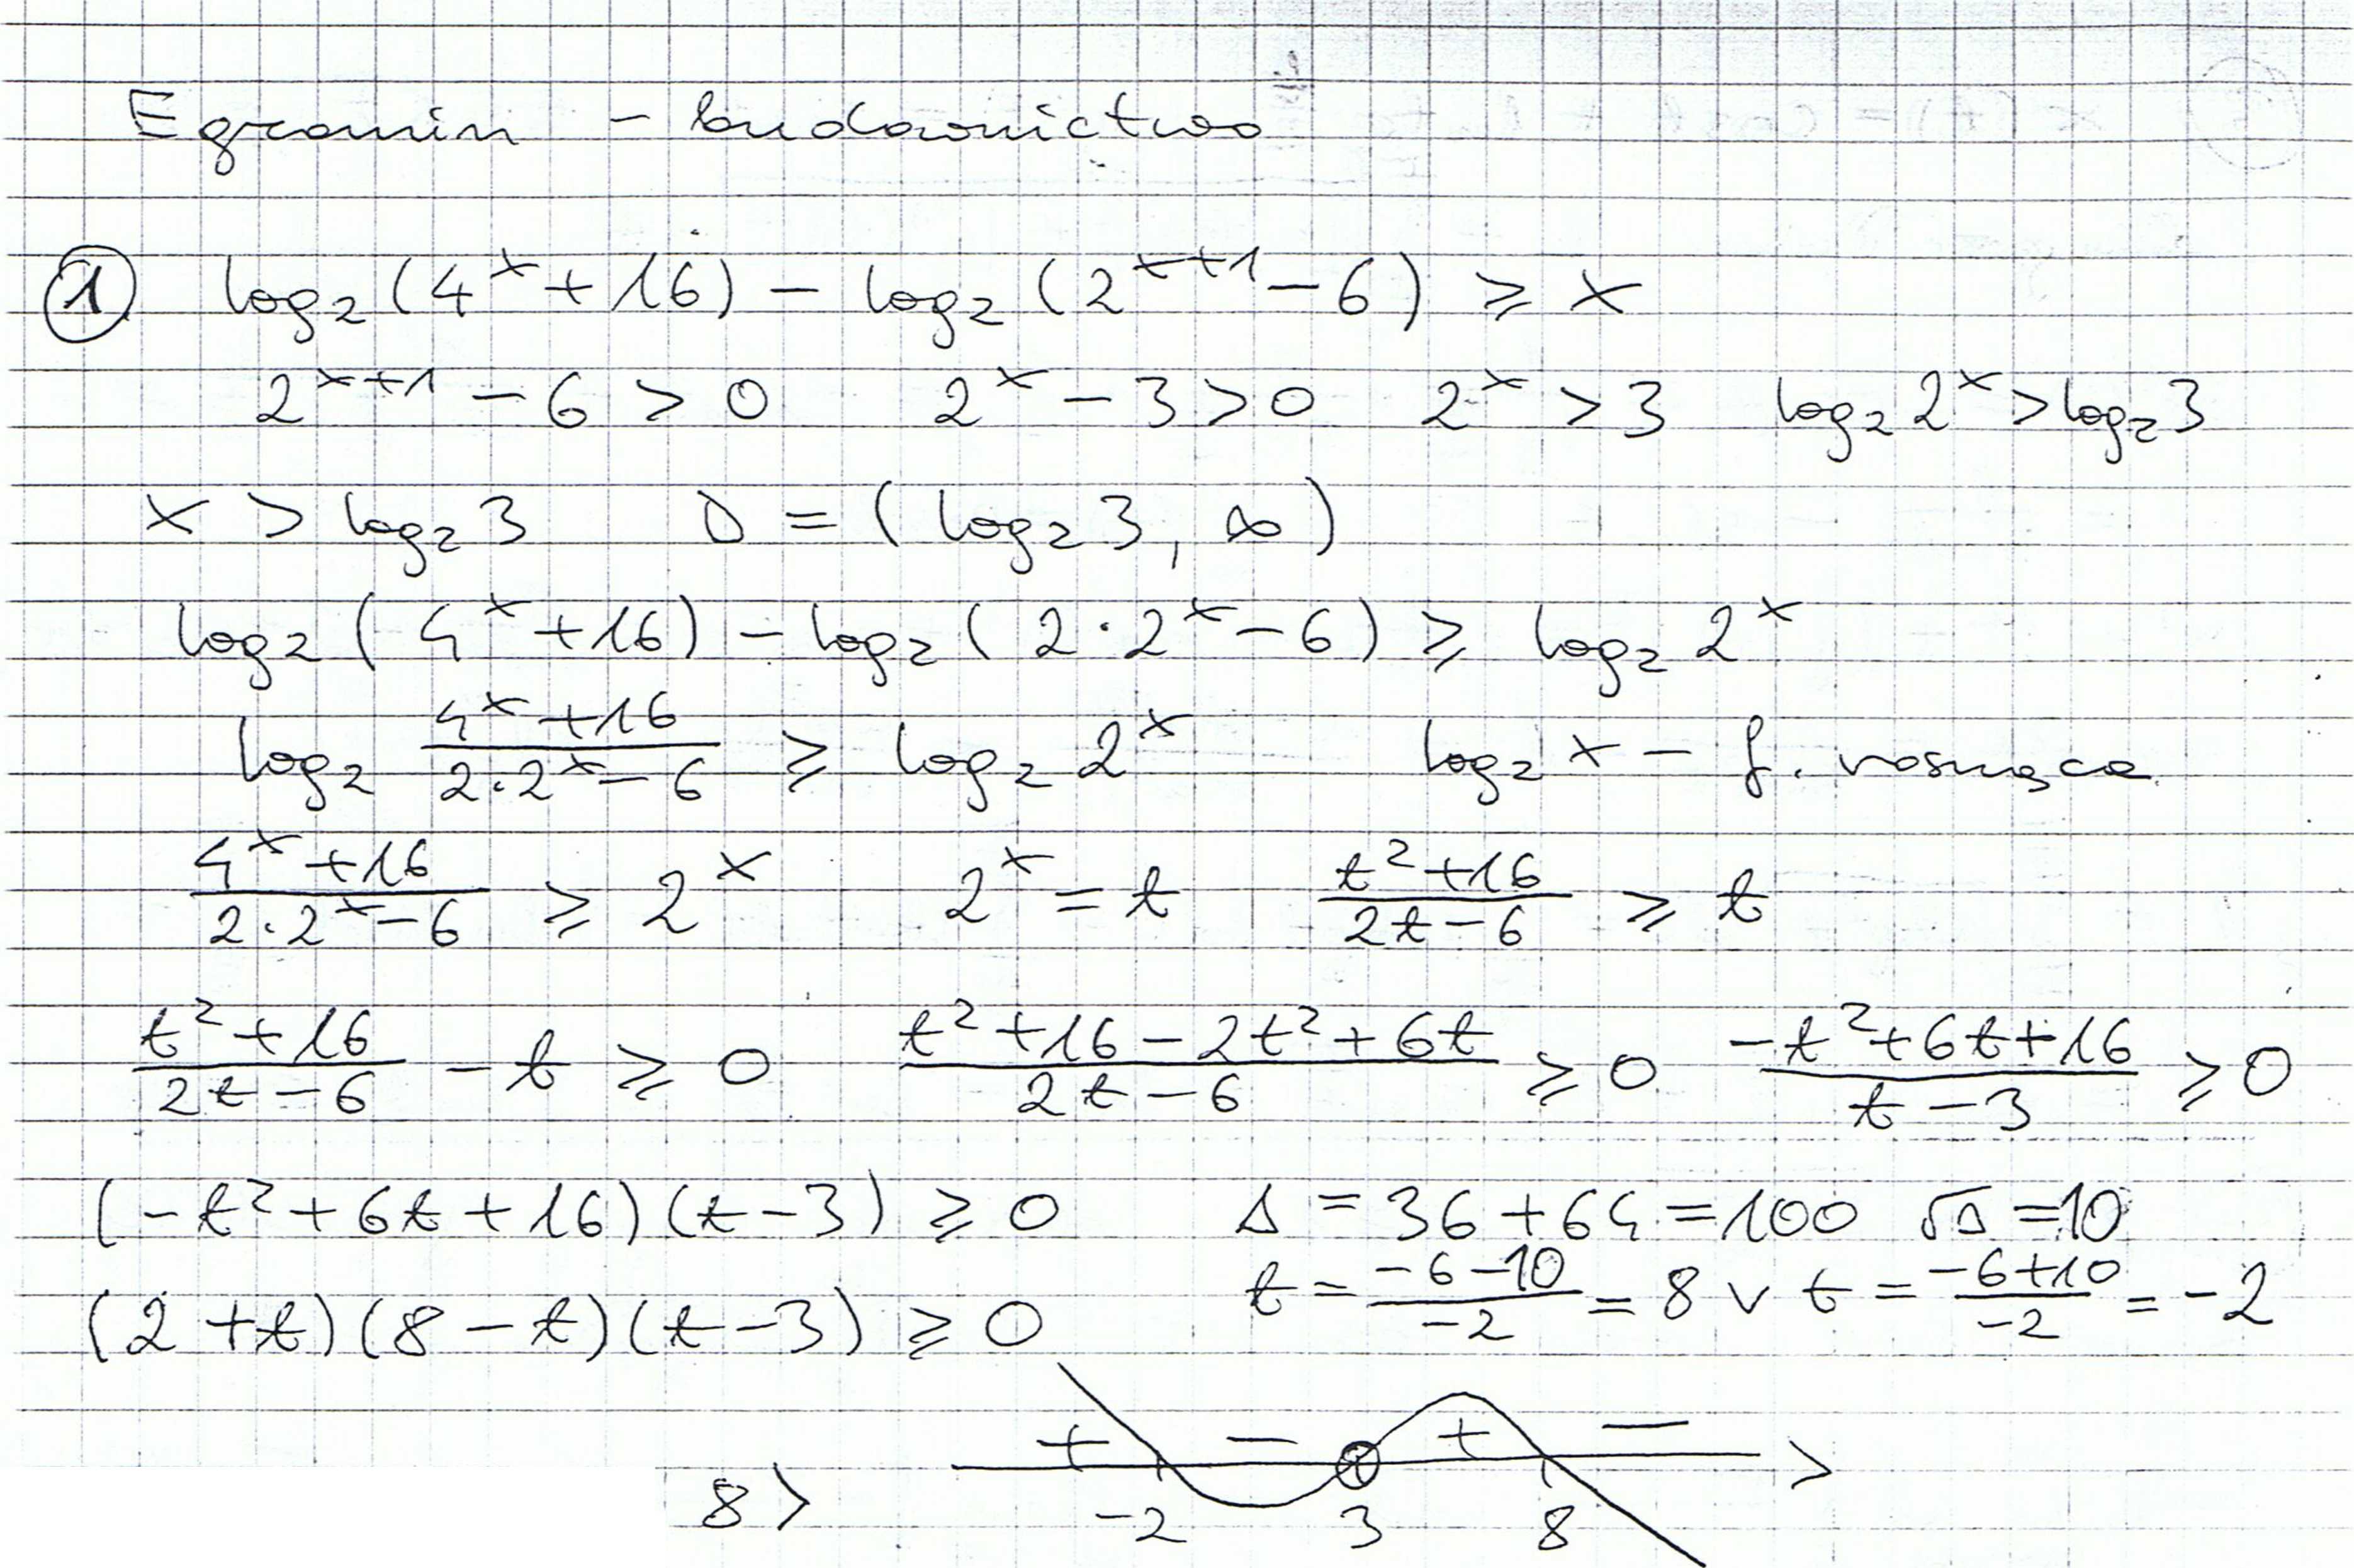 Egzamin - budownictwo
① log₂(4^x + 16) - log₂(2^(x+1) - 6) ≥ x
2^(x+1) - 6 > 0 2^x - 3 > 0 2^x > 3 log₂ 2^x > log₂ 3
x > log₂ 3 D = (log₂ 3, ∞)
log₂(4^x + 16) - log₂(2·2^x - 6) ≥ log₂ 2^x
log₂ (4^x + 16)/(2·2^x - 6) ≥ log₂ 2^x log₂ x - f. rosnąca
(4^x + 16)/(2·2^x - 6) ≥ 2^x 2^x = t (t² + 16)/(2t - 6) ≥ t
(t² + 16)/(2t - 6) - t ≥ 0 (t² + 16 - 2t² + 6t)/(2t - 6) ≥ 0 (-t² + 6t + 16)/(t - 3) ≥ 0
(-t² + 6t + 16)(t - 3) ≥ 0 Δ = 36 + 64 = 100 √Δ = 10
t = (-6 - 10)/(-2) = 8 ∨ t = (-6 + 10)/(-2) = -2
(2 + t)(8 - t)(t - 3) ≥ 0
+ - + -
8> -2 3 8